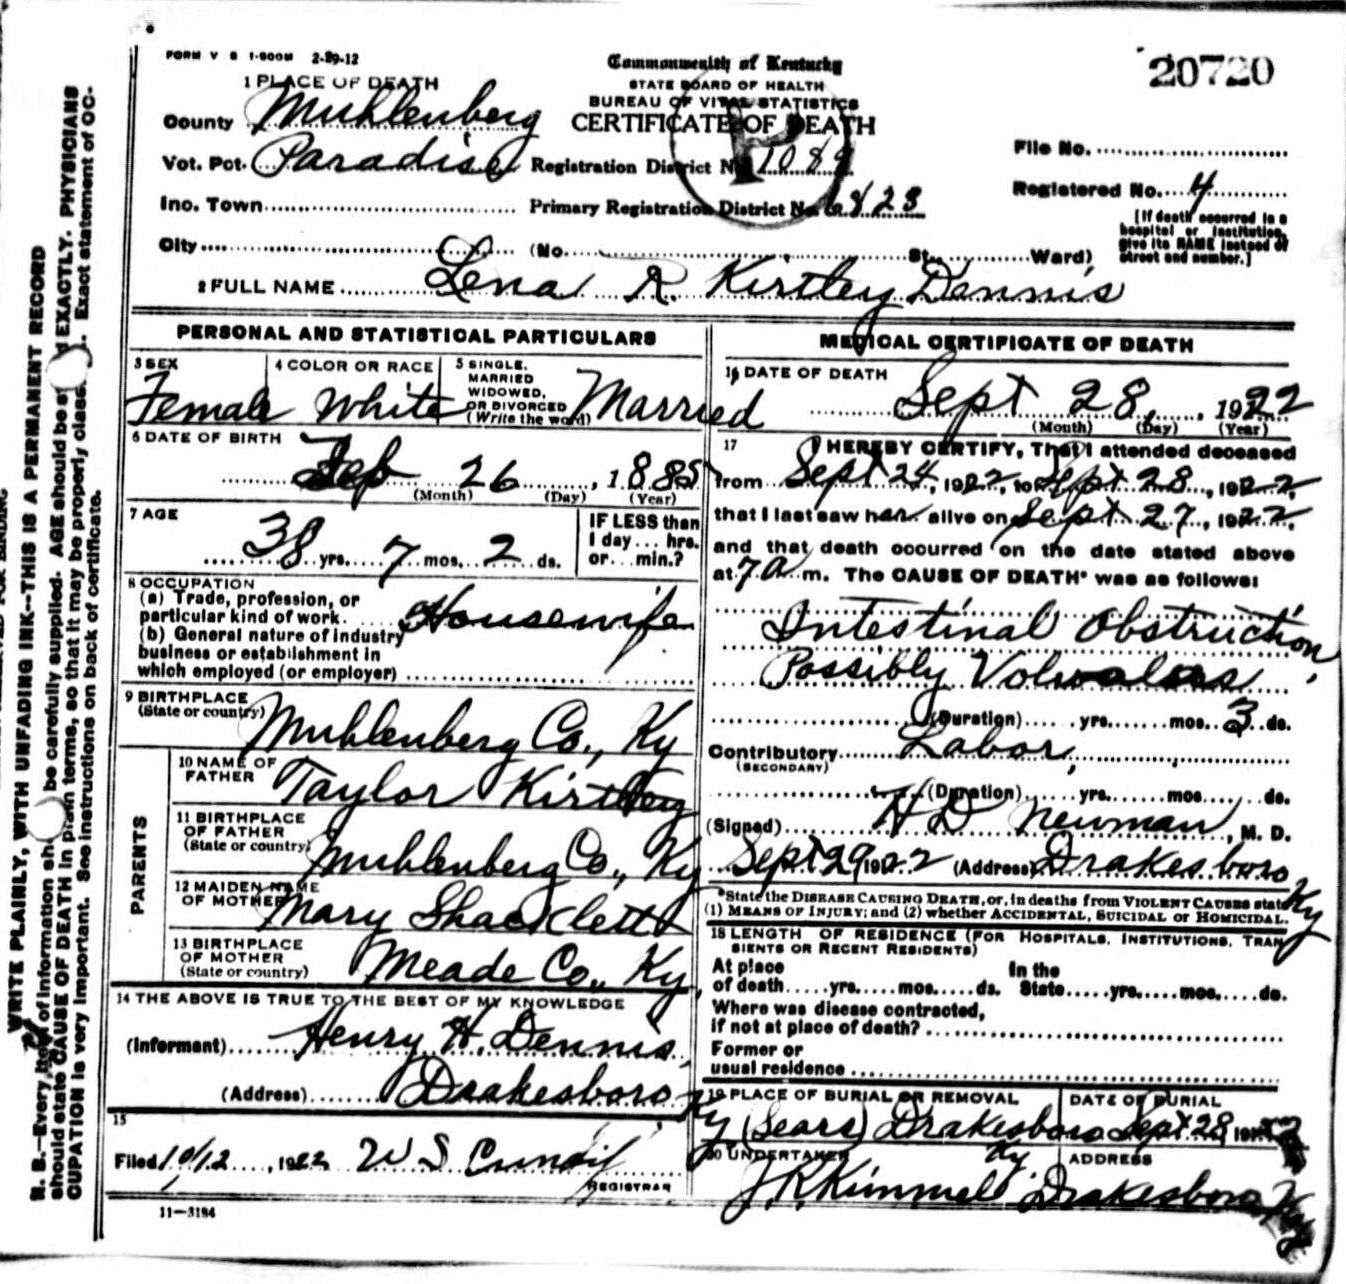 FORM V S 1-500M 2-29-12
Commonwealth of Kentucky
STATE BOARD OF HEALTH
BUREAU OF VITAL STATISTICS
CERTIFICATE OF DEATH
20720
1 PLACE OF DEATH
County Muhlenberg
Vot. Pct. Paradise Registration District No. 1089
File No.
Inc. Town Primary Registration District No. 6823
Registered No. 4
City (No. St., Ward)
[If death occurred in a hospital or institution, give its NAME instead of street and number.]
2 FULL NAME Lena R. Kirtley Dennis
PERSONAL AND STATISTICAL PARTICULARS
3 SEX Female
4 COLOR OR RACE White
5 SINGLE, MARRIED WIDOWED, OR DIVORCED (Write the word) Married
6 DATE OF BIRTH
Feb 26, 1885
(Month) (Day) (Year)
7 AGE
38 yrs. 7 mos. 2 ds.
IF LESS than 1 day... hrs. or... min.?
8 OCCUPATION
(a) Trade, profession, or particular kind of work. Housewife
(b) General nature of industry business or establishment in which employed (or employer)
9 BIRTHPLACE
(State or country) Muhlenberg Co., Ky
PARENTS
10 NAME OF FATHER Taylor Kirtley
11 BIRTHPLACE OF FATHER (State or country) Muhlenberg Co., Ky
12 MAIDEN NAME OF MOTHER Mary Shacklett
13 BIRTHPLACE OF MOTHER (State or country) Meade Co., Ky.
14 THE ABOVE IS TRUE TO THE BEST OF MY KNOWLEDGE
(Informant) Henry H. Dennis
(Address) Drakesboro Ky
15
Filed 10/12, 1922 W S
REGISTRAR
11-3184
MEDICAL CERTIFICATE OF DEATH
16 DATE OF DEATH
Sept 28, 1922
(Month) (Day) (Year)
17 I HEREBY CERTIFY, That I attended deceased
from Sept 24, 1922, to Sept 28, 1922,
that I last saw her alive on Sept 27, 1922,
and that death occurred on the date stated above
at 7 a m. The CAUSE OF DEATH* was as follows:
Intestinal Obstruction,
Possibly
(Duration) yrs. mos. 3 ds.
Contributory Labor,
(SECONDARY)
(Duration) yrs. mos. ds.
(Signed) H D Newman, M. D.
Sept 29 1922 (Address) Drakesboro Ky
*State the DISEASE CAUSING DEATH, or, in deaths from VIOLENT CAUSES state
(1) MEANS OF INJURY; and (2) whether ACCIDENTAL, SUICIDAL or HOMICIDAL.
18 LENGTH OF RESIDENCE (FOR HOSPITALS, INSTITUTIONS, TRAN
SIENTS OR RECENT RESIDENTS)
At place of death yrs. mos. ds. In the State yrs. mos. ds.
Where was disease contracted,
if not at place of death?
Former or
usual residence
19 PLACE OF BURIAL OR REMOVAL DATE OF BURIAL
(Sears) Drakesboro Ky Sept 28, 1922
20 UNDERTAKER ADDRESS
J R Kimmel Drakesboro Ky
WRITE PLAINLY, WITH UNFADING INK--THIS IS A PERMANENT RECORD
N. B.--Every item of information should be carefully supplied. AGE should be stated EXACTLY. PHYSICIANS
should state CAUSE OF DEATH in plain terms, so that it may be properly classified. Exact statement of OC-
CUPATION is very important. See instructions on back of certificate.